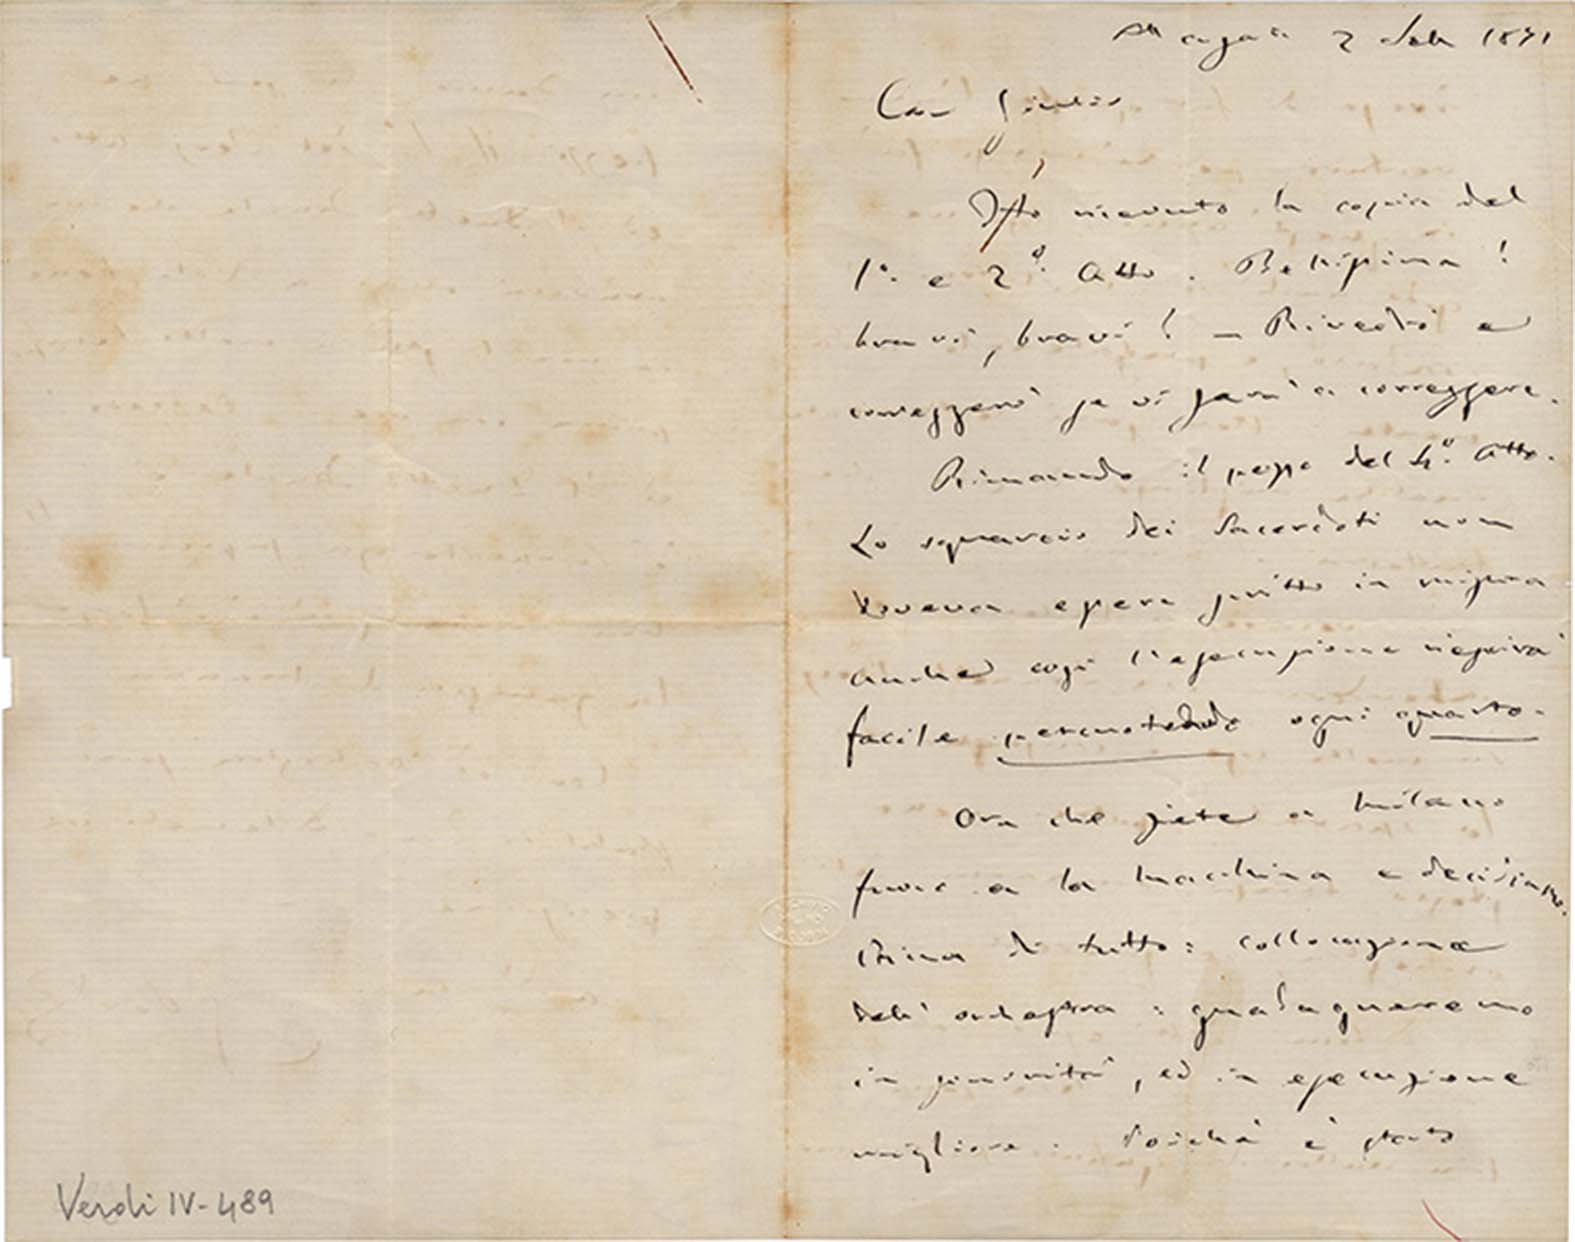 S. Agata 2 Set. 1871
Car Giulio
Ho ricevuto la copia del
1º. e 2º. Atto. Bellissima!
bravi, bravi! – Rivedrò e
correggerò se vi sarà a correggere.
Rimando il pezzo del 4º. Atto.
Lo squarcio dei Sacerdoti non
doveva essere scritto in misura
anche così l'esecuzione riescirà
facile percuotendo ogni quarto.
Ora che siete a Milano
fuoc a la macchina e decidiamo
Prima di tutto: collocazione
dell' orchestra: guadagneremo
in sonorità, ed in esecuzione
migliore. Poichè è stato
Verdi IV-489